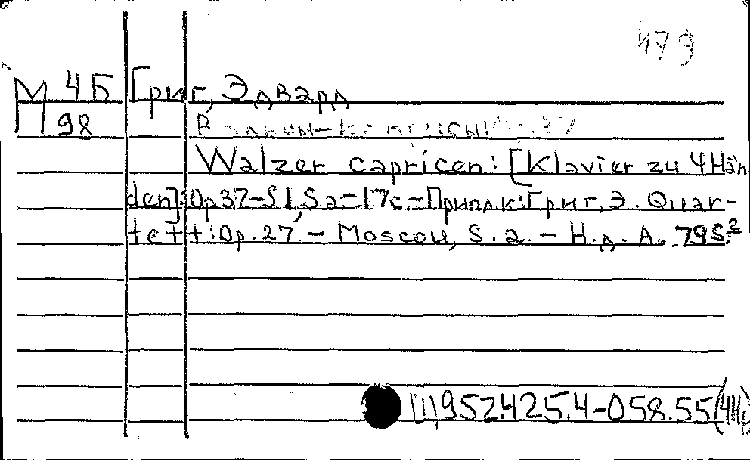 479
М 4Б Григ, Эдвард
П 98
Walzer capricen: [Klavier zu 4 Hän
den]: Op 37 - S.l, S a - 17 c - Прилж: Григ, Э. Quar-
tett: Op. 27. - Moscou, S. a. - Н.д. А. 795²
(1) 952.425.4-058.55(4Н)